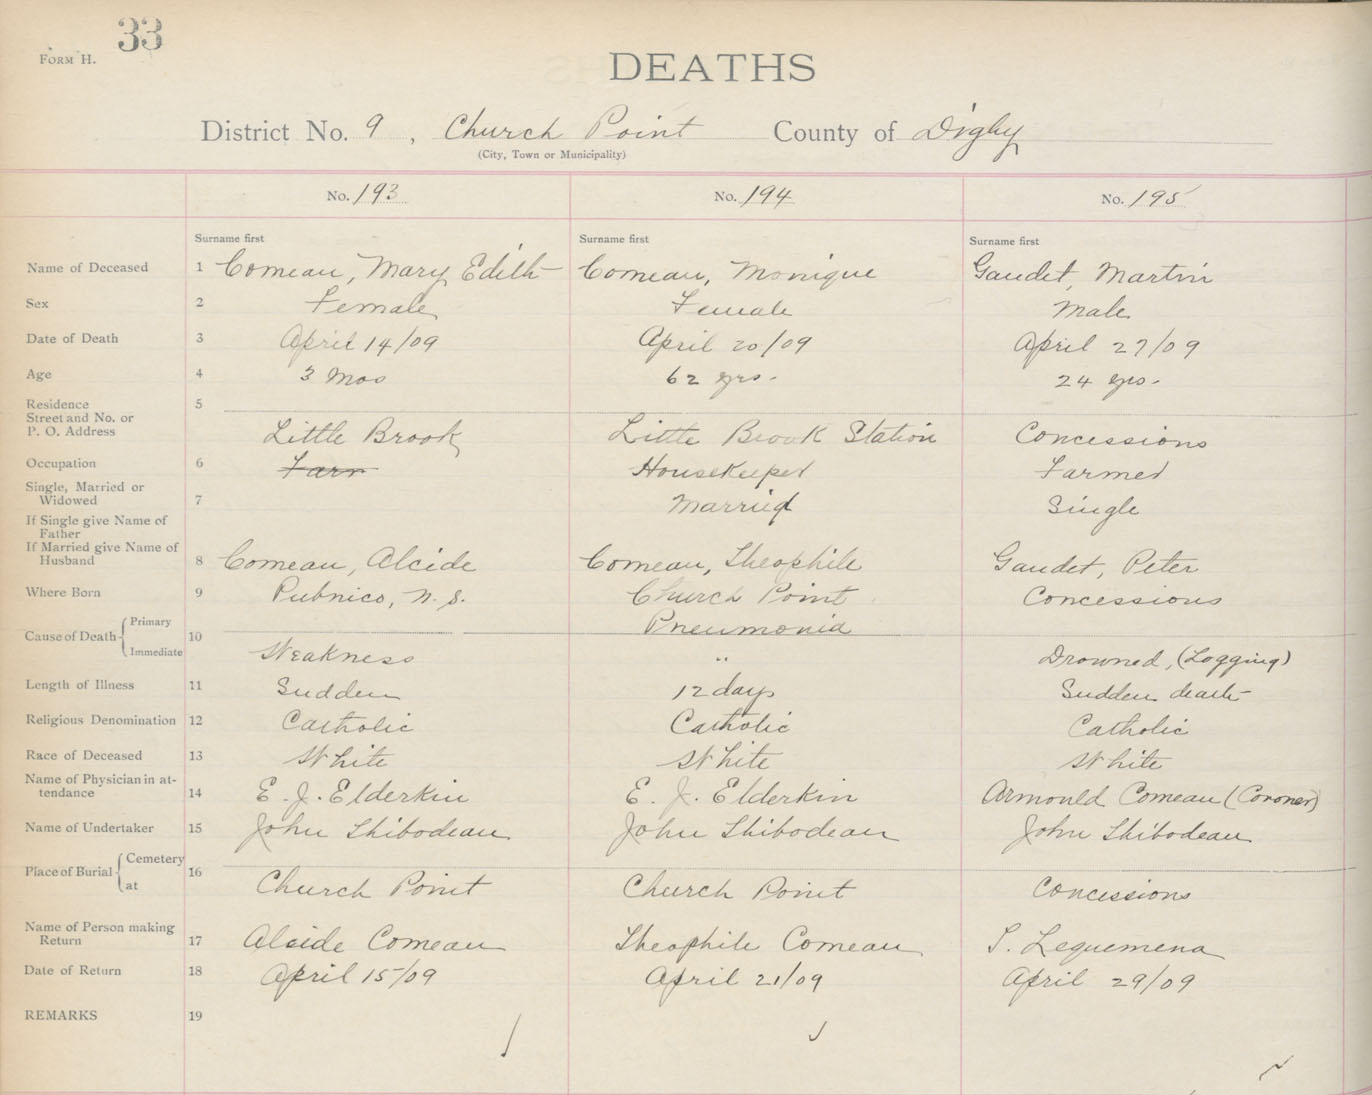 33
FORM H.
DEATHS
District No. 9, Church Point County of Digby
(City, Town or Municipality)
No. 193 No. 194 No. 195
Surname first Surname first Surname first
Name of Deceased 1 Comeau, Mary Edith Comeau, Monique Gaudet, Martin
Sex 2 Female Female Male
Date of Death 3 April 14/09 April 20/09 April 27/09
Age 4 3 Mos 62 yrs. 24 yrs.
Residence 5
Street and No. or
P. O. Address Little Brook Little Brook Station Concessions
Occupation 6 Farr Housekeeper Farmer
Single, Married or
Widowed 7 Married Single
If Single give Name of
Father
If Married give Name of
Husband 8 Comeau, Alcide Comeau, Theophile Gaudet, Peter
Where Born 9 Pubnico, N.S. Church Point Concessions
Cause of Death { Primary 10 Pneumonia
Immediate Weakness " Drowned, (Logging)
Length of Illness 11 Sudden 12 days Sudden death
Religious Denomination 12 Catholic Catholic Catholic
Race of Deceased 13 White White White
Name of Physician in at-
tendance 14 E. J. Elderkin E. J. Elderkin Armould Comeau (Coroner)
Name of Undertaker 15 John Thibodeau John Thibodeau John Thibodeau
Place of Burial { Cemetery 16
at Church Point Church Point Concessions
Name of Person making
Return 17 Alcide Comeau Theophile Comeau
Date of Return 18 April 15/09 April 21/09 April 29/09
REMARKS 19